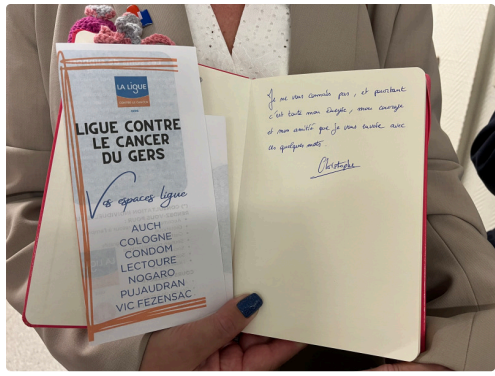 LA LIGUE
CONTRE LE CANCER
LIGUE CONTRE
LE CANCER
DU GERS
Vos espaces ligue
AUCH
COLOGNE
CONDOM
LECTOURE
NOGARO
PUJAUDRAN
VIC FEZENSAC
Je ne vous connais pas, et pourtant
c'est toute mon énergie, mon courage
et mon amitié que je vous envoie avec
ces quelques mots.
Christophe